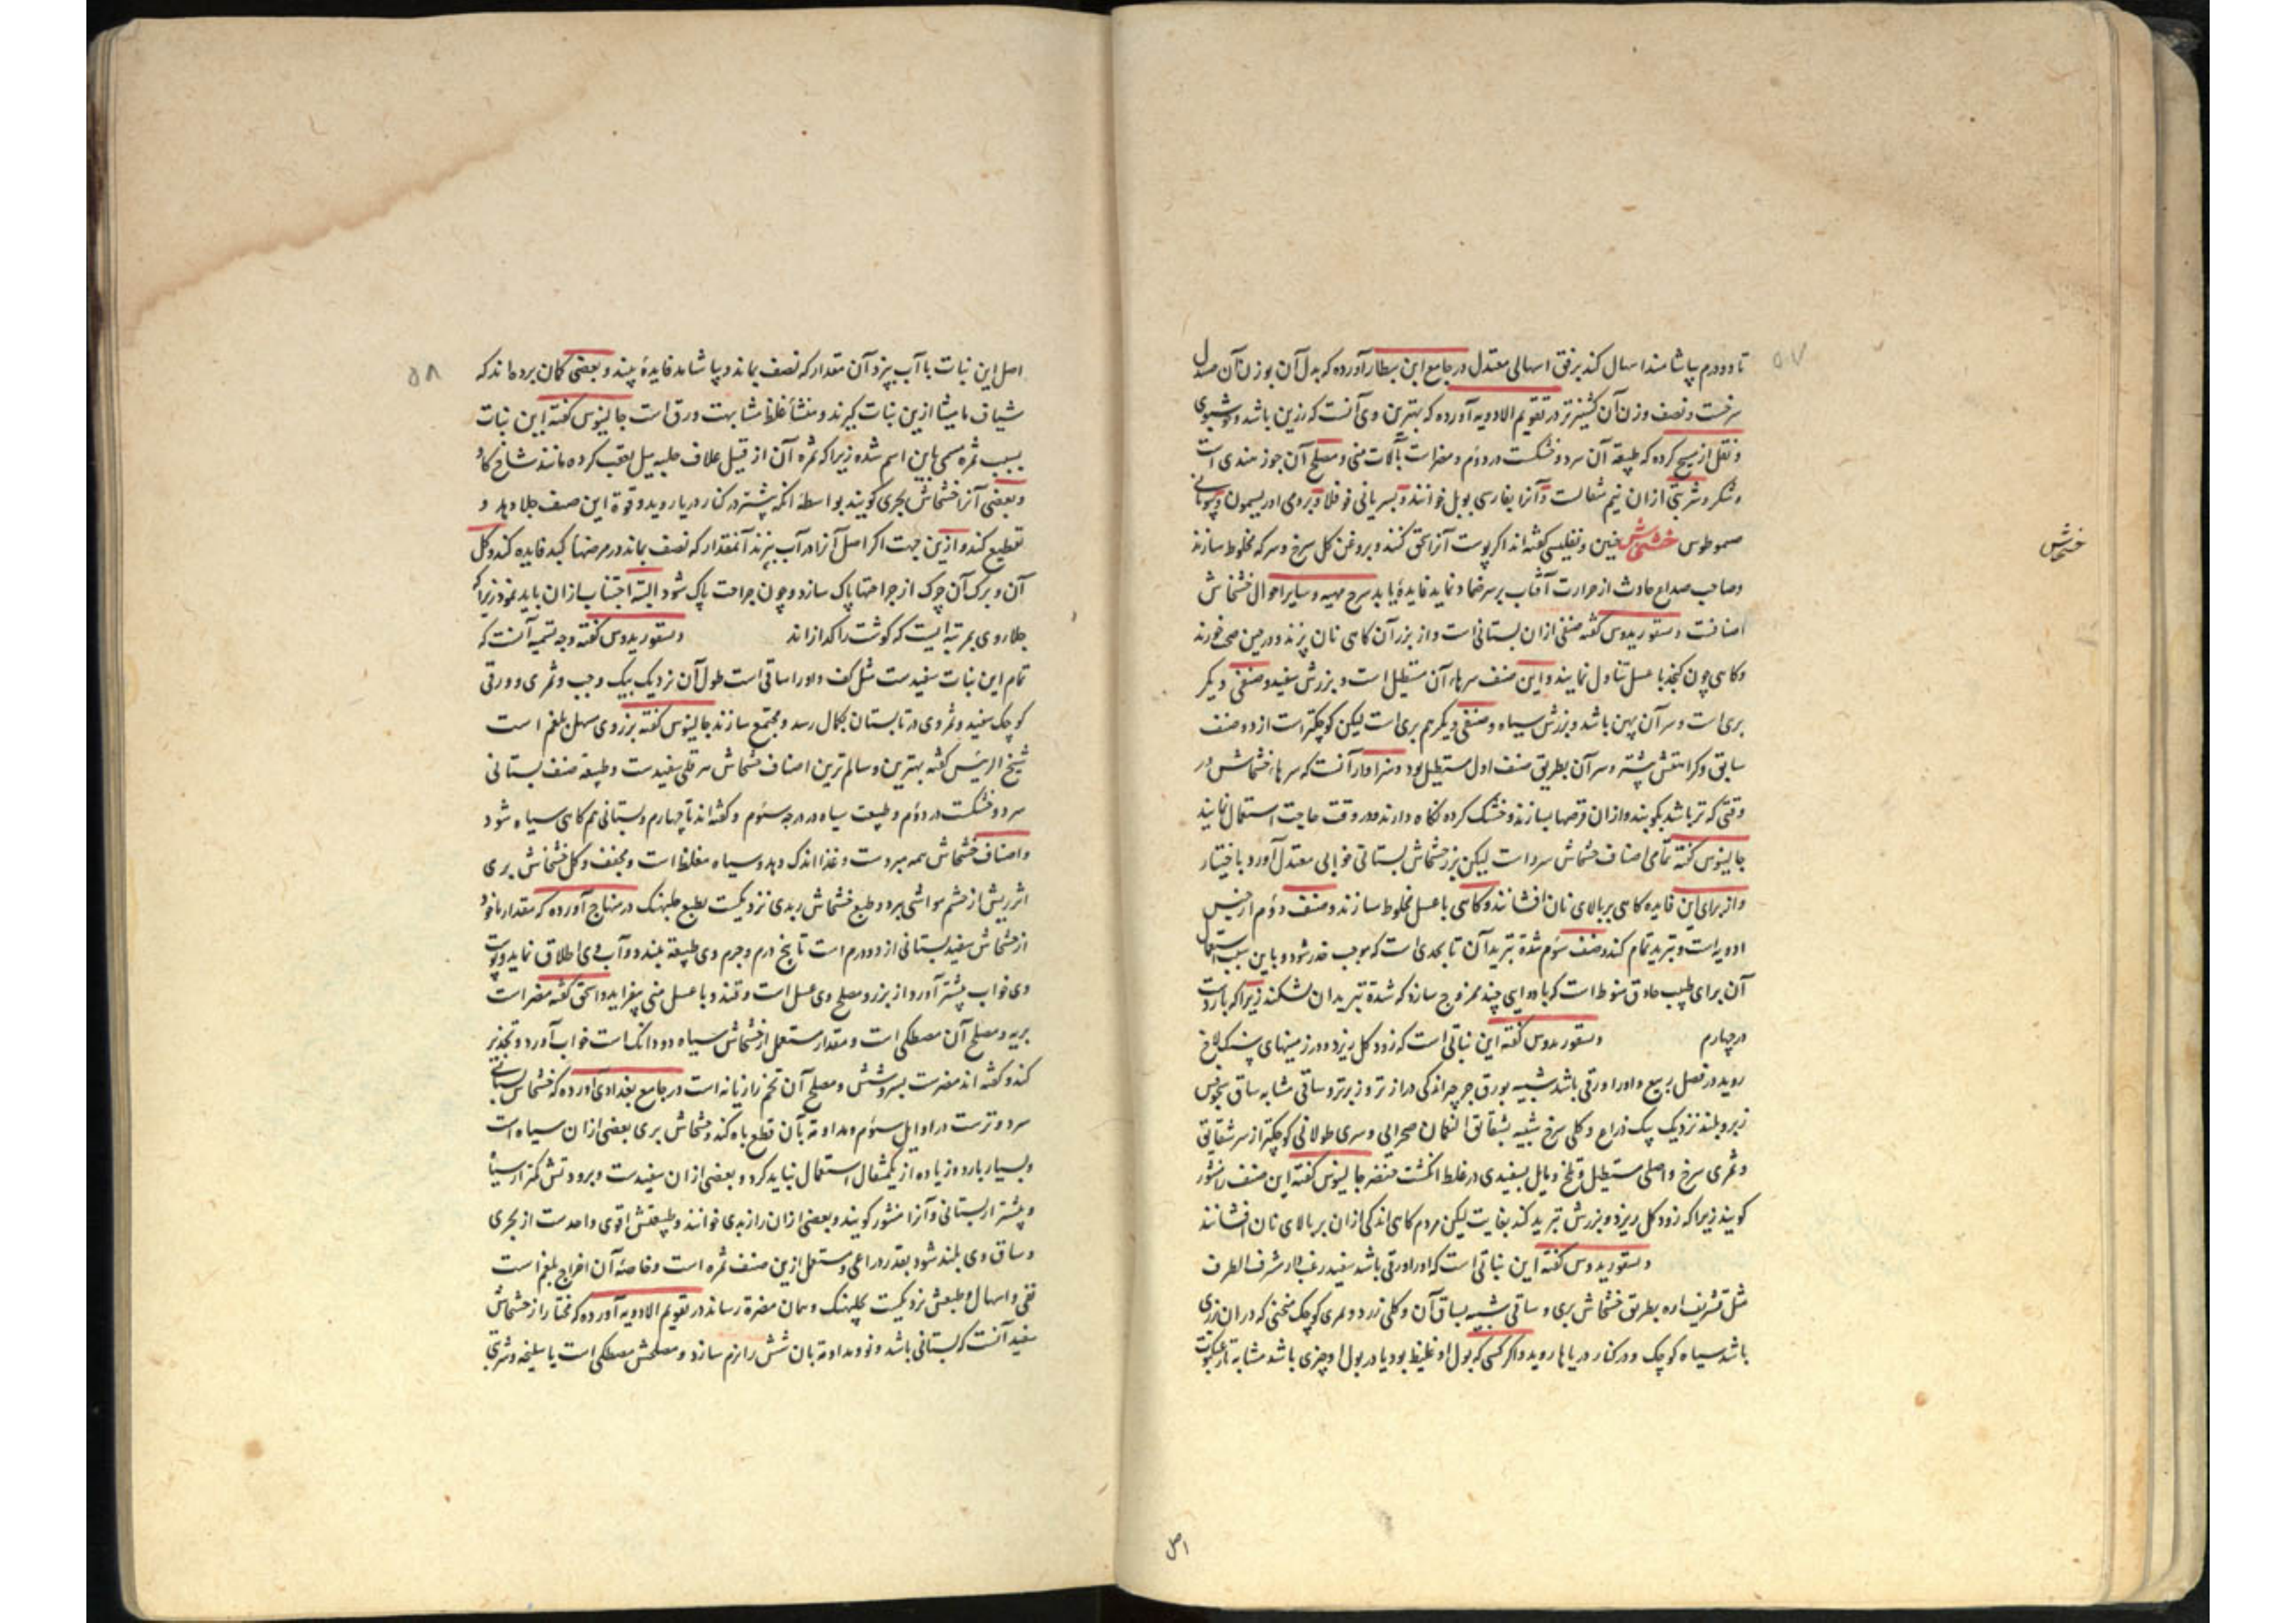 ۵۷
تا دو درم بیاشامند اسهال کند برفق اسهالی معتدل در جامع ابن بیطار آورده که بدل آن بوزن آن صندل
سرخست و نصف وزن آن کشنیز تر در تقویم الادویه آورده که بهترین وی آنست که رزین باشد و خوشبوی
و نقل از مسیح کرده که طبیعة آن سرد و خشکست در دوم و مضر است بآلات منی و مصلح آن جوز هندی است
و شکر و شربتی ازان نیم مثقالست و آنرا بفارسی بوبل خوانند و بسریانی فوفلا و برومی اوریسمون و بیونانی
صموطوس خشخاش حنین و تفلیسی گفته اند اگر پوست آنرا سحق کنند و بروغن گل سرخ و سرکه مخلوط سازند
خشخاش
و صاحب صداع حادث از حرارت آفتاب بر سر ضماد نماید فایده یابد شرح مهیه و سایر احوال خشخاش
اصنافست دیسقوریدوس گفته صنفی ازان بستانی است و از بزر آن گاهی نان پزند و در حین صحت خورند
و گاهی چون کنجد با عسل تناول نمایند و این صنف سرهاء آن مستطیل است و بزرش سفید و صنفی دیگر
بری است و سر آن پهن باشد و بزرش سیاه و صنفی دیگر هم بری است لیکن کوچکتر است از دو صنف
سابق و کراهتش بیشتر و سر آن بطریق صنف اول مستطیل بود و سزاوار آنست که سرهاء خشخاش در
وقتی که تر باشد بکوبند و ازان قرصها بسازند و خشک کرده نگاه دارند و در وقت حاجت استعمال نمایند
جالینوس گفته تمامی اصناف خشخاش سرد است لیکن بزر خشخاش بستانی خوابی معتدل آورد باختیار
و از برای این فایده گاهی بر بالای نان افشانند و گاهی با عسل مخلوط سازند و صنف دوم از جنس
ادویه است و تبرید تمام کند و صنف سوم شدة تبرید آن تا بحدی است که موجب خدر شود و باین سبب استعمال
آن برای طبیب حاذق منوط است که با دوایی چند ممزوج سازد که شدة تبرید ان بشکند زیرا که باردست
در چهارم دیسقوریدوس گفته این نباتی است که زود گل ریزد و در زمینهای سنگلاخ
روید در فصل ربیع و او را ورقی باشد شبیه بورق جرجیر اندکی درازتر و زبرتر و ساقی مشابه ساق
زبر و بلند نزدیک بیک ذراع و گلی سرخ شبیه بشقایق النعمان صحرایی و سری طولانی کوچکتر از سر شقایق
و ثمری سرخ و اصلی مستطیل و تلخ و مایل بسفیدی در غلظ انگشت خنصر جالینوس گفته این صنف را منثور
گویند زیرا که زود گل ریزد و بزرش تبرید کند بغایت لیکن مردم گاهی اندکی ازان بر بالای نان افشانند
دیسقوریدوس گفته این نباتی است که او را ورقی باشد سفید زغب دار مشرف الطرف
مثل تشریف اره بطریق خشخاش بری و ساقی شبیه بساق آن و گلی زرد و ثمری کوچک منحنی که دران بزری
باشد سیاه کوچک و در کنار دریاها روید و اگر کسی که بول او غلیظ بود یا در بول او چیزی باشد مشابه تار عنکبوت
اصل
۵۸
اصل این نبات با آب بپزد آن مقدار که نصف بماند و بیاشامد فایده بیند و بعضی گمان برده اند که
شیاف مامیثا ازین نبات گیرند و منشأ غلط مشابهت ورق است جالینوس گفته این نبات
بسبب ثمره مسمی باین اسم شده زیرا که ثمره آن از قبیل غلاف حلبه میل بعقب کرده مانند شاخ گاو
و بعضی آنرا خشخاش بحری گویند بواسطه انکه بیشتر در کنار دریا روید و قوة این صنف جلا دهد و
تقطیع کند و ازین جهت اگر اصل آنرا در آب بپزند آنمقدار که نصف بماند در مرضهای کبد فایده کند و گل
آن و برگ آن چرک از جراحتها پاک سازد و چون جراحت پاک شود البته اجتناب ازان باید نمود زیرا که
جلاء وی بمرتبه ایست که گوشت را گدازاند دیسقوریدوس گفته وجه تسمیه آنست که
تمام این نبات سفیدست مثل کف و او را ساقی است طول آن نزدیک بیک وجب و ثمری و ورقی
کوچک سفید و ثمر وی در تابستان بکمال رسد و مجتمع سازند جالینوس گفته بزر وی مسهل بلغم است
شیخ الرئیس گفته بهترین و سالم ترین اصناف خشخاش سفیدست و طبیعة صنف بستانی
سرد و خشکست در دوم و طبیعت سیاه در درجه سوم و گفته اند تا چهارم و بستانی هم گاهی سیاه شود
و اصناف خشخاش همه مبردست و غذا اندک دهد و سیاه مغلظ است و مجفف و گل خشخاش بری
اثر ریش از چشم مواشی برد و طبع خشخاش زبدی نزدیکست بطبع در منهاج آورده که مقدار ماخوذ
از خشخاش سفید بستانی از دو درم است تا پنج درم و جرم وی طبیعة ببندد و آب وی اطلاق نماید و پوست
وی خواب بیشتر آورد از بزر و مصلح وی عسل است و قند و با عسل منی بیفزاید و اسحق گفته مضر است
بریه و مصلح آن مصطکی است و مقدار مستعمل از خشخاش سیاه دو دانگ است خواب آورد و تخدیر
کند و گفته اند مضرست بسر و شش و مصلح آن تخم رازیانه است در جامع بغدادی آورده که خشخاش بستانی
سرد و ترست در اوایل سوم و مداومة بآن قطع باه کند و خشخاش بری بعضی ازان سیاه است
و بسیار بارد و زیاده از یکمثقال استعمال نباید کرد و بعضی ازان سفیدست و برودتش کمتر از سیاه
و بیشتر از بستانی و آنرا منثور گویند و بعضی ازان را زبدی خوانند و طبیعتش اقوی و احدست از بحری
و ساق وی بلند شود بقدر ذراعی و مستعمل ازین صنف ثمره است و خاصة آن اخراج بلغم است
بقی و اسهال و طبعش نزدیکست و همان مضرة رساند در تقویم الادویه آورده که مختار از خشخاش
سفید آنست که بستانی باشد و نو و مداومة بان شش را لازم سازد و مصلحش مصطکی است یا سلیخه و شربتی